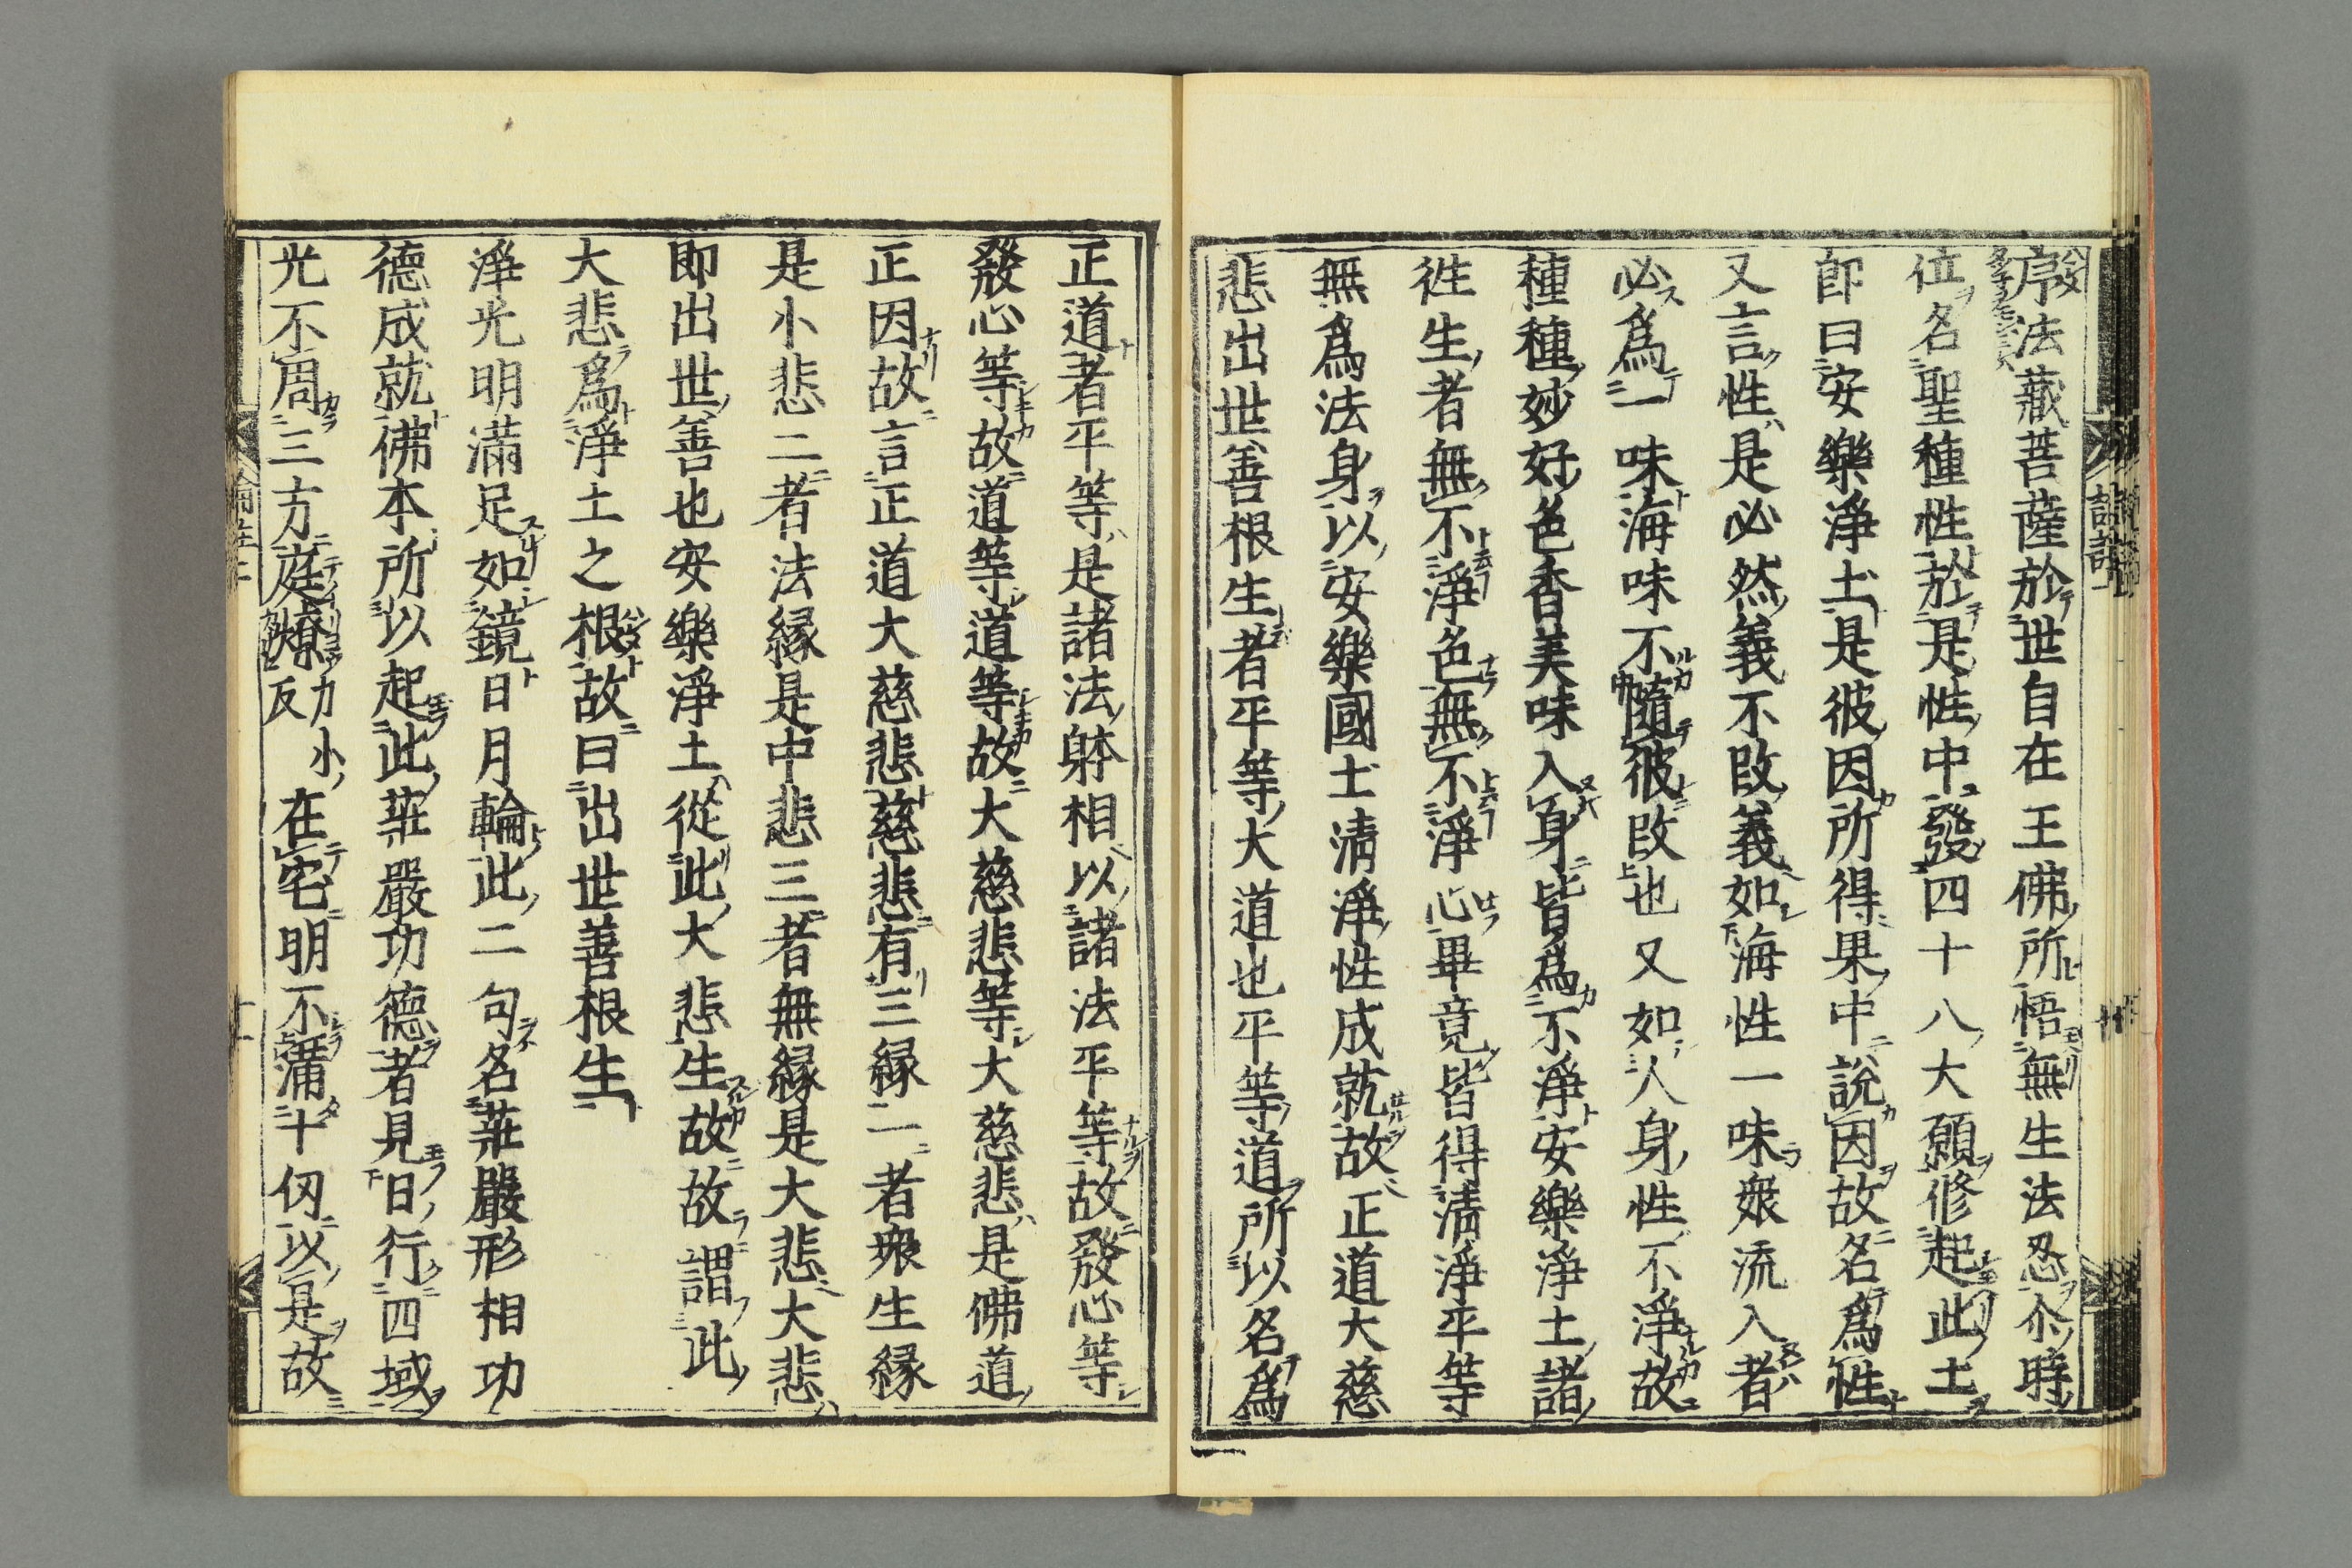 序法藏菩薩於世自在王佛所悟無生法忍尒時
位名聖種性於是性中發四十八大願修起此土
即曰安樂淨土是彼因所得果中說因故名爲性
又言性是必然義不改義如海性一味衆流入者
必爲一味海味不隨彼改也又如人身性不淨故
種種妙好色香美味入身皆爲不淨安樂淨土諸
往生者無不淨色無不淨心畢竟皆得清淨平等
無爲法身以安樂國土清淨性成就故正道大慈
悲出世善根生者平等大道也平等道所以名爲
正道者平等是諸法躰相以諸法平等故發心等
發心等故道等道等故大慈悲等大慈悲是佛道
正因故言正道大慈悲慈悲有三縁一者衆生縁
是小悲二者法縁是中悲三者無縁是大悲大悲
即出世善也安樂淨土從此大悲生故故謂此
大悲爲淨土之根故曰出世善根生
淨光明滿足如鏡日月輪此二句名莊嚴形相功
德成就佛本所以起此莊嚴功德者見日行四域
光不周三方庭燎力小反在宅明不滿十仭以是故